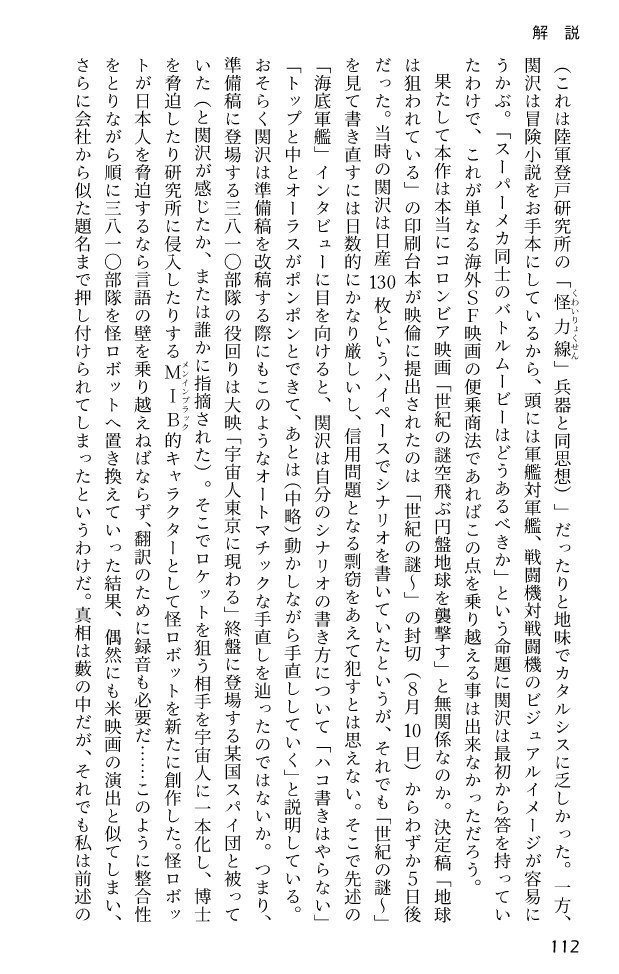 解説
（これは陸軍登戸研究所の「怪力線」兵器と同思想）」だったりと地味でカタルシスに乏しかった。一方、
くわいりょくせん
関沢は冒険小説をお手本にしているから、頭には軍艦対軍艦、戦闘機対戦闘機のビジュアルイメージが容易に
うかぶ。「スーパーメカ同士のバトルムービーはどうあるべきか」という命題に関沢は最初から答を持ってい
たわけで、これが単なる海外ＳＦ映画の便乗商法であればこの点を乗り越える事は出来なかっただろう。
果たして本作は本当にコロンビア映画「世紀の謎空飛ぶ円盤地球を襲撃す」と無関係なのか。決定稿「地球
は狙われている」の印刷台本が映倫に提出されたのは「世紀の謎～」の封切（８月10日）からわずか５日後
だった。当時の関沢は日産130枚というハイペースでシナリオを書いていたというが、それでも「世紀の謎～」
を見て書き直すには日数的にかなり厳しいし、信用問題となる剽窃をあえて犯すとは思えない。そこで先述の
「海底軍艦」インタビューに目を向けると、関沢は自分のシナリオの書き方について「ハコ書きはやらない」
「トップと中とオーラスがポンポンとできて、あとは（中略）動かしながら手直ししていく」と説明している。
おそらく関沢は準備稿を改稿する際にもこのようなオートマチックな手直しを辿ったのではないか。つまり、
準備稿に登場する三八一〇部隊の役回りは大映「宇宙人東京に現わる」終盤に登場する某国スパイ団と被って
いた（と関沢が感じたか、または誰かに指摘された）。そこでロケットを狙う相手を宇宙人に一本化し、博士
を脅迫したり研究所に侵入したりするＭＩＢ的キャラクターとして怪ロボットを新たに創作した。怪ロボッ
メンインブラック
トが日本人を脅迫するなら言語の壁を乗り越えねばならず、翻訳のために録音も必要だ……このように整合性
をとりながら順に三八一〇部隊を怪ロボットへ置き換えていった結果、偶然にも米映画の演出と似てしまい、
さらに会社から似た題名まで押し付けられてしまったというわけだ。真相は藪の中だが、それでも私は前述の
112